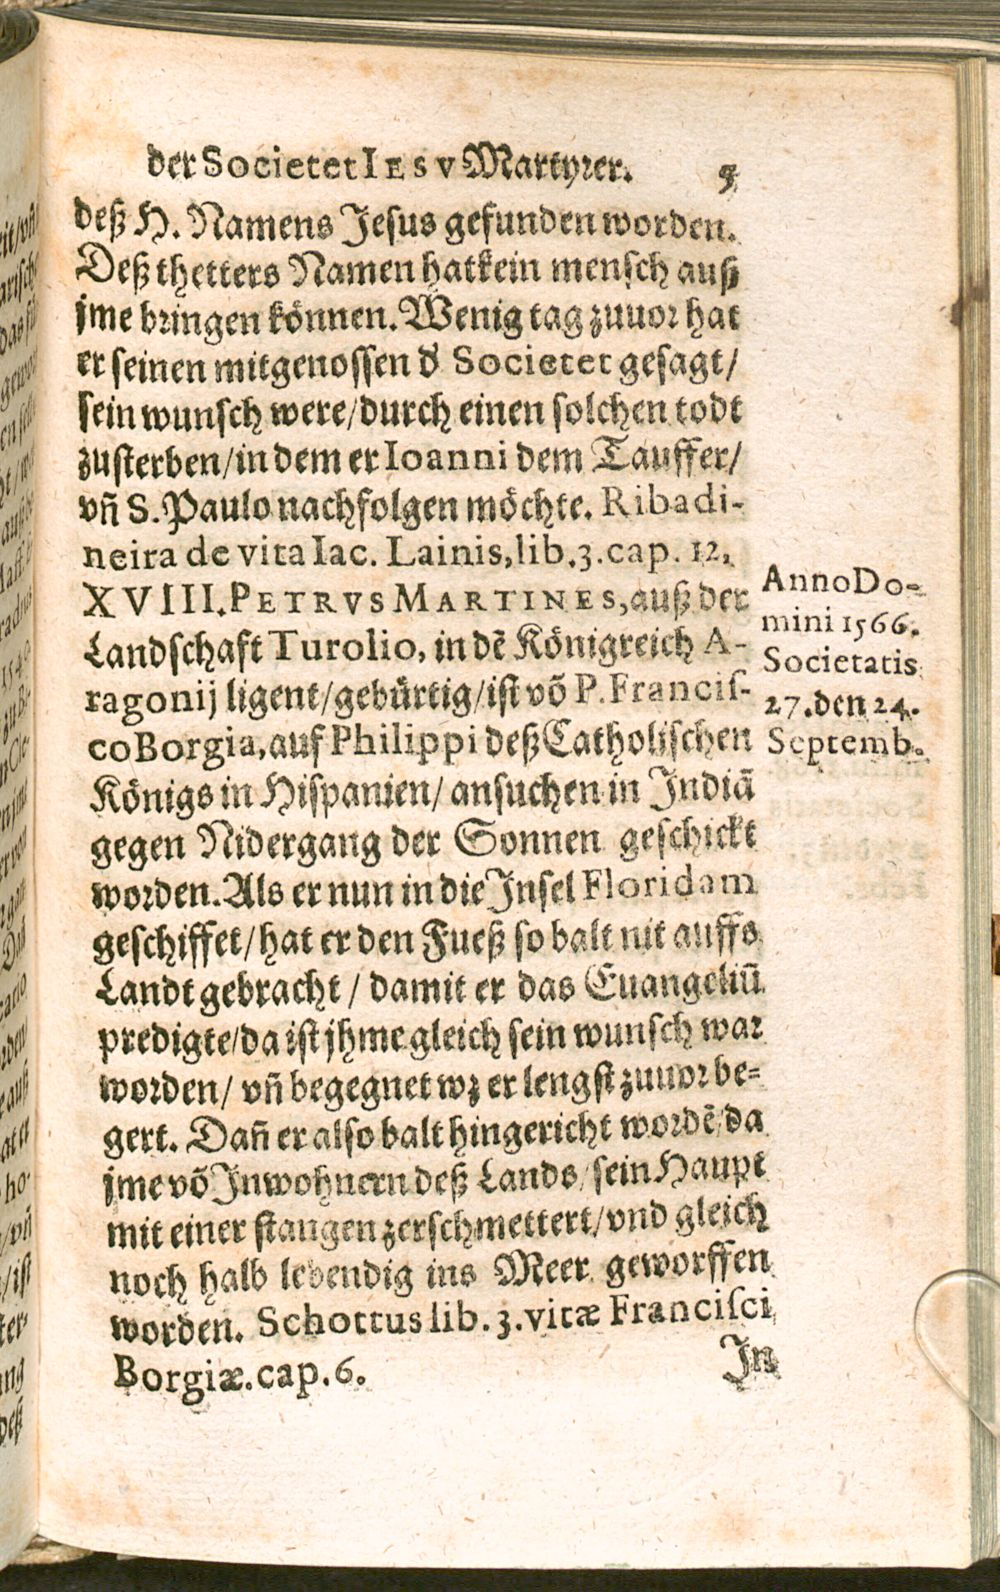 der Societet IESV Martyrer. 5
deß H. Namens Jesus gefunden worden.
Deß thetters Namen hat kein mensch auß
jme bringen können. Wenig tag zuuor hat
er seinen mitgenossen d Societet gesagt/
sein wunsch were/durch einen solchen todt
zusterben/in dem er Ioanni dem Tauffer/
vñ S. Paulo nachfolgen möchte. Ribadi-
neira de vita Iac. Lainis, lib. 3. cap. 12.
XVIII. PETRVS MARTINES, auß der
Landschaft Turolio, in dẽ Königreich A-
ragonij ligent/gebürtig/ist võ P. Francis-
co Borgia, auf Philippi deß Catholischen
Königs in Hispanien/ ansuchen in Indiã
gegen Nidergang der Sonnen geschickt
worden. Als er nun in die Insel Floridam
geschiffet/hat er den Fueß so balt nit auffs
Landt gebracht / damit er das Euangeliũ
predigte/da ist jhme gleich sein wunsch war
worden/ vñ begegnet wz er lengst zuuor be-
gert. Dañ er also balt hingericht wordẽ/da
jme võ Inwohnern deß Lands/sein Haupt
mit einer stangen zerschmettert/vnd gleich
noch halb lebendig ins Meer geworffen
worden. Schottus lib. 3. vitæ Francisci
Borgiæ. cap. 6.
In
Anno Do-
mini 1566.
Societatis
27. den 24.
Septemb.